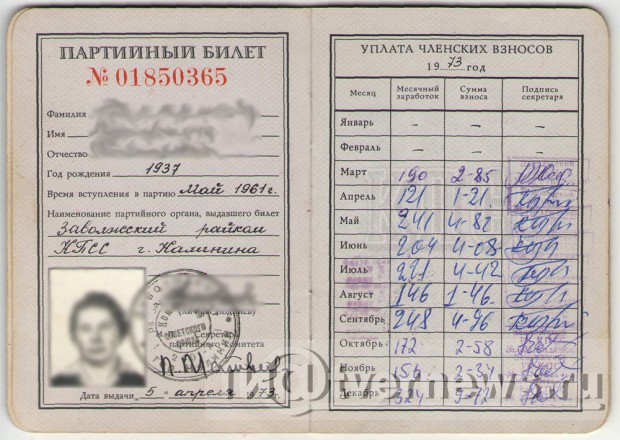 ПАРТИЙНЫЙ БИЛЕТ
№ 01850365
Фамилия
Имя
Отчество
Год рождения 1937
Время вступления в партию Май 1961 г.
Наименование партийного органа, выдавшего билет
Заволжский райком
КПСС г. Калинина
(Личная подпись)
Секретарь
партийного комитета
Дата выдачи 5 - апреля 1973 г.
УПЛАТА ЧЛЕНСКИХ ВЗНОСОВ
1973 год
Месяц Месячный заработок Сумма взноса Подпись секретаря
Январь — — —
Февраль — — —
Март 190 2-85
Апрель 121 1-21
Май 241 4-82
Июнь 204 4-08
Июль 221 4-42
Август 146 1-46
Сентябрь 248 4-96
Октябрь 172 2-58
Ноябрь 156 2-34
Декабрь 324 9-72
tvernews.ru